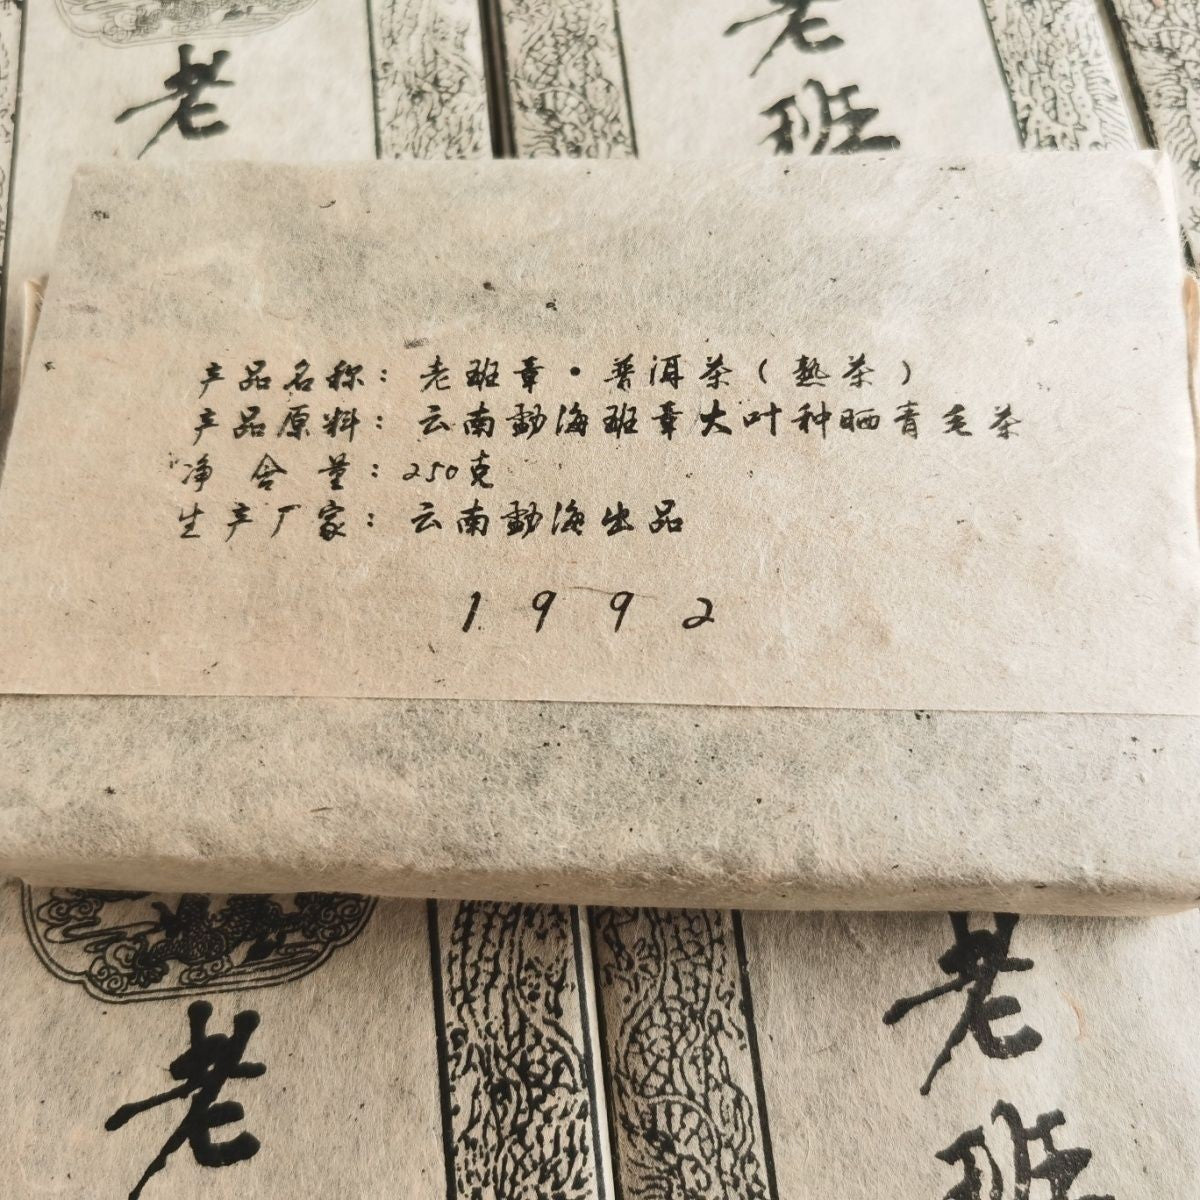 老
老
班
产品名称：老班章·普洱茶（熟茶）
产品原料：云南勐海班章大叶种晒青毛茶
净含量：250克
生产厂家：云南勐海出品
1992
老
老
班